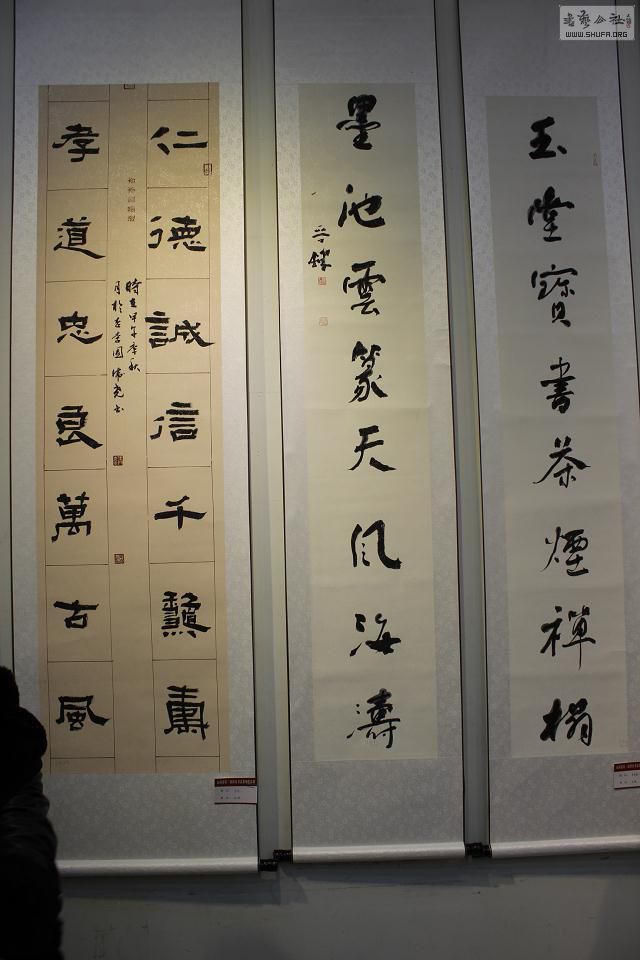 書藝公社
WWW.SHUFA.ORG
玉堂寶書茶煙禪榻
墨池雲篆天風海濤
仁德誠信千龝壽
孝道忠良萬古風
時在甲午季秋